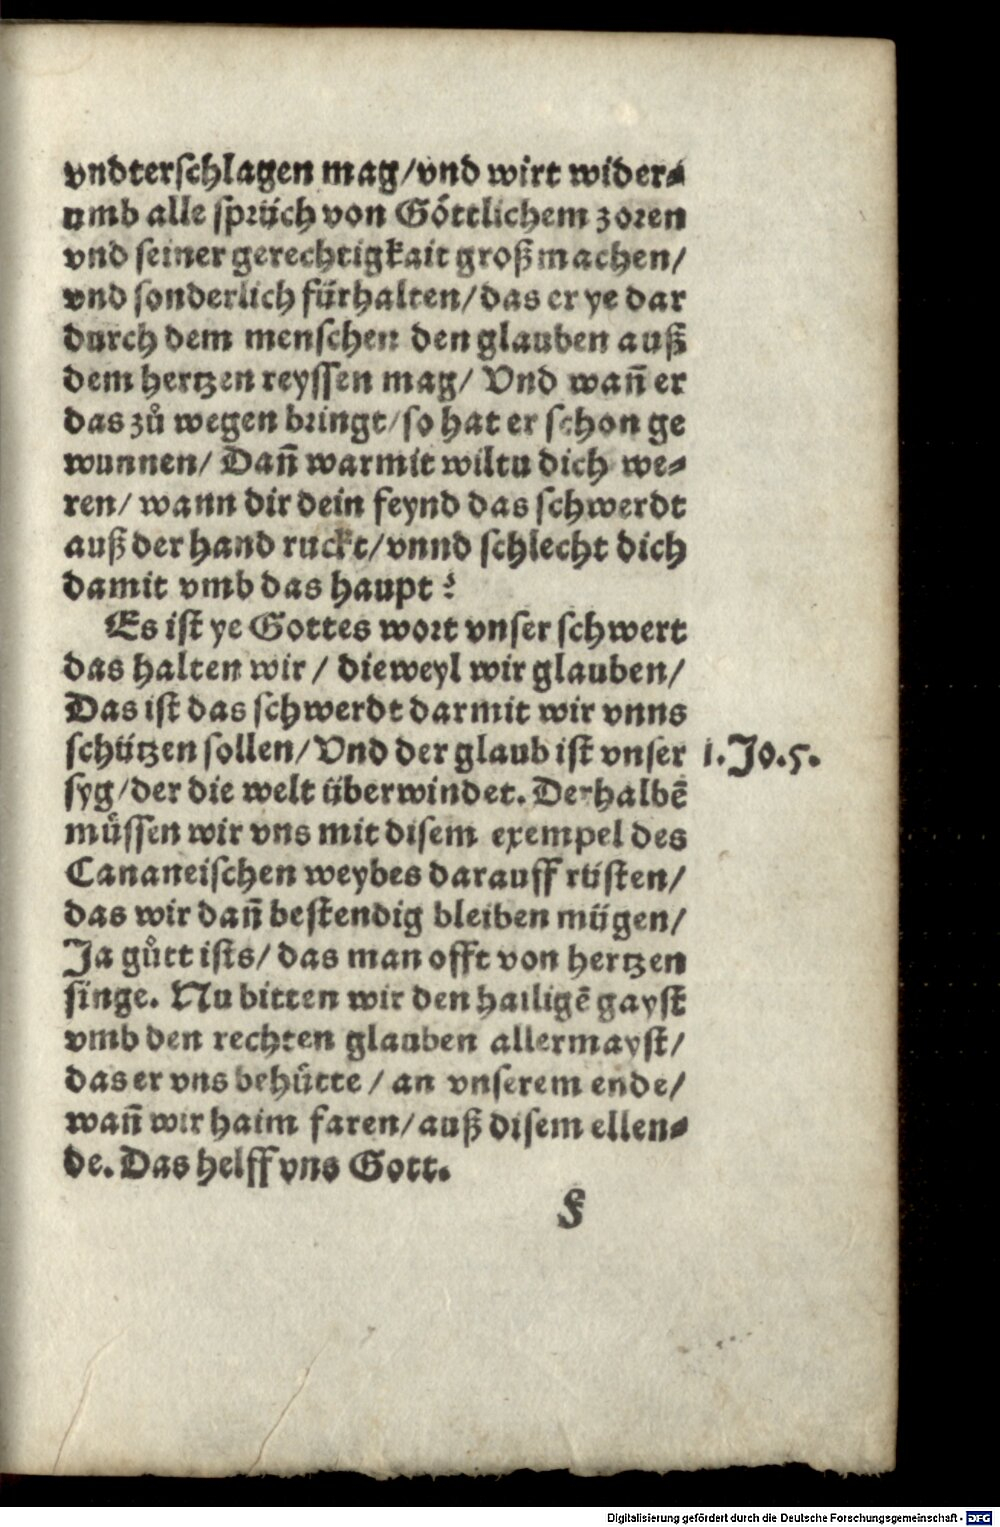 vndterschlagen mag/vnd wirt wider⸗
umb alle sprüch von Göttlichem zoren
vnd seiner gerechtigkait groß machen/
vnd sonderlich fürhalten/das er ye dar
durch dem menschen den glauben auß
dem hertzen reyssen mag/ Vnd wañ er
das zů wegen bringt/so hat er schon ge
wunnen/ Dañ warmit wiltu dich we⸗
ren/ wann dir dein feynd das schwerdt
auß der hand ruckt/vnnd schlecht dich
damit vmb das haupt?
Es ist ye Gottes wort vnser schwert
das halten wir/ dieweyl wir glauben/
Das ist das schwerdt darmit wir vnns
schützen sollen/Vnd der glaub ist vnser 1.Jo.5.
syg/der die welt überwindet. Derhalbē
müssen wir vns mit disem exempel des
Cananeischen weybes darauff rüsten/
das wir dañ bestendig bleiben mügen/
Ja gůtt ists/das man offt von hertzen
singe. Nu bitten wir den hailigē gayst
vmb den rechten glauben allermayst/
das er vns behütte/an vnserem ende/
wañ wir haim faren/auß disem ellen⸗
de. Das helff vns Gott.
F
Digitalisierung gefördert durch die Deutsche Forschungsgemeinschaft - DFG